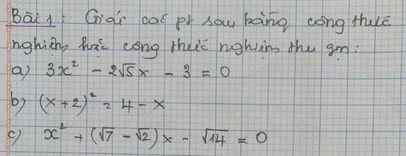 Bài 1: Giải các pt sau bằng công thức
nghiệm hoặc công thức nghiệm thu gọn:
a) 3x² - 2√5x - 3 = 0
b) (x+2)² = 4 - x
c) x² + (√7 - √2)x - √14 = 0